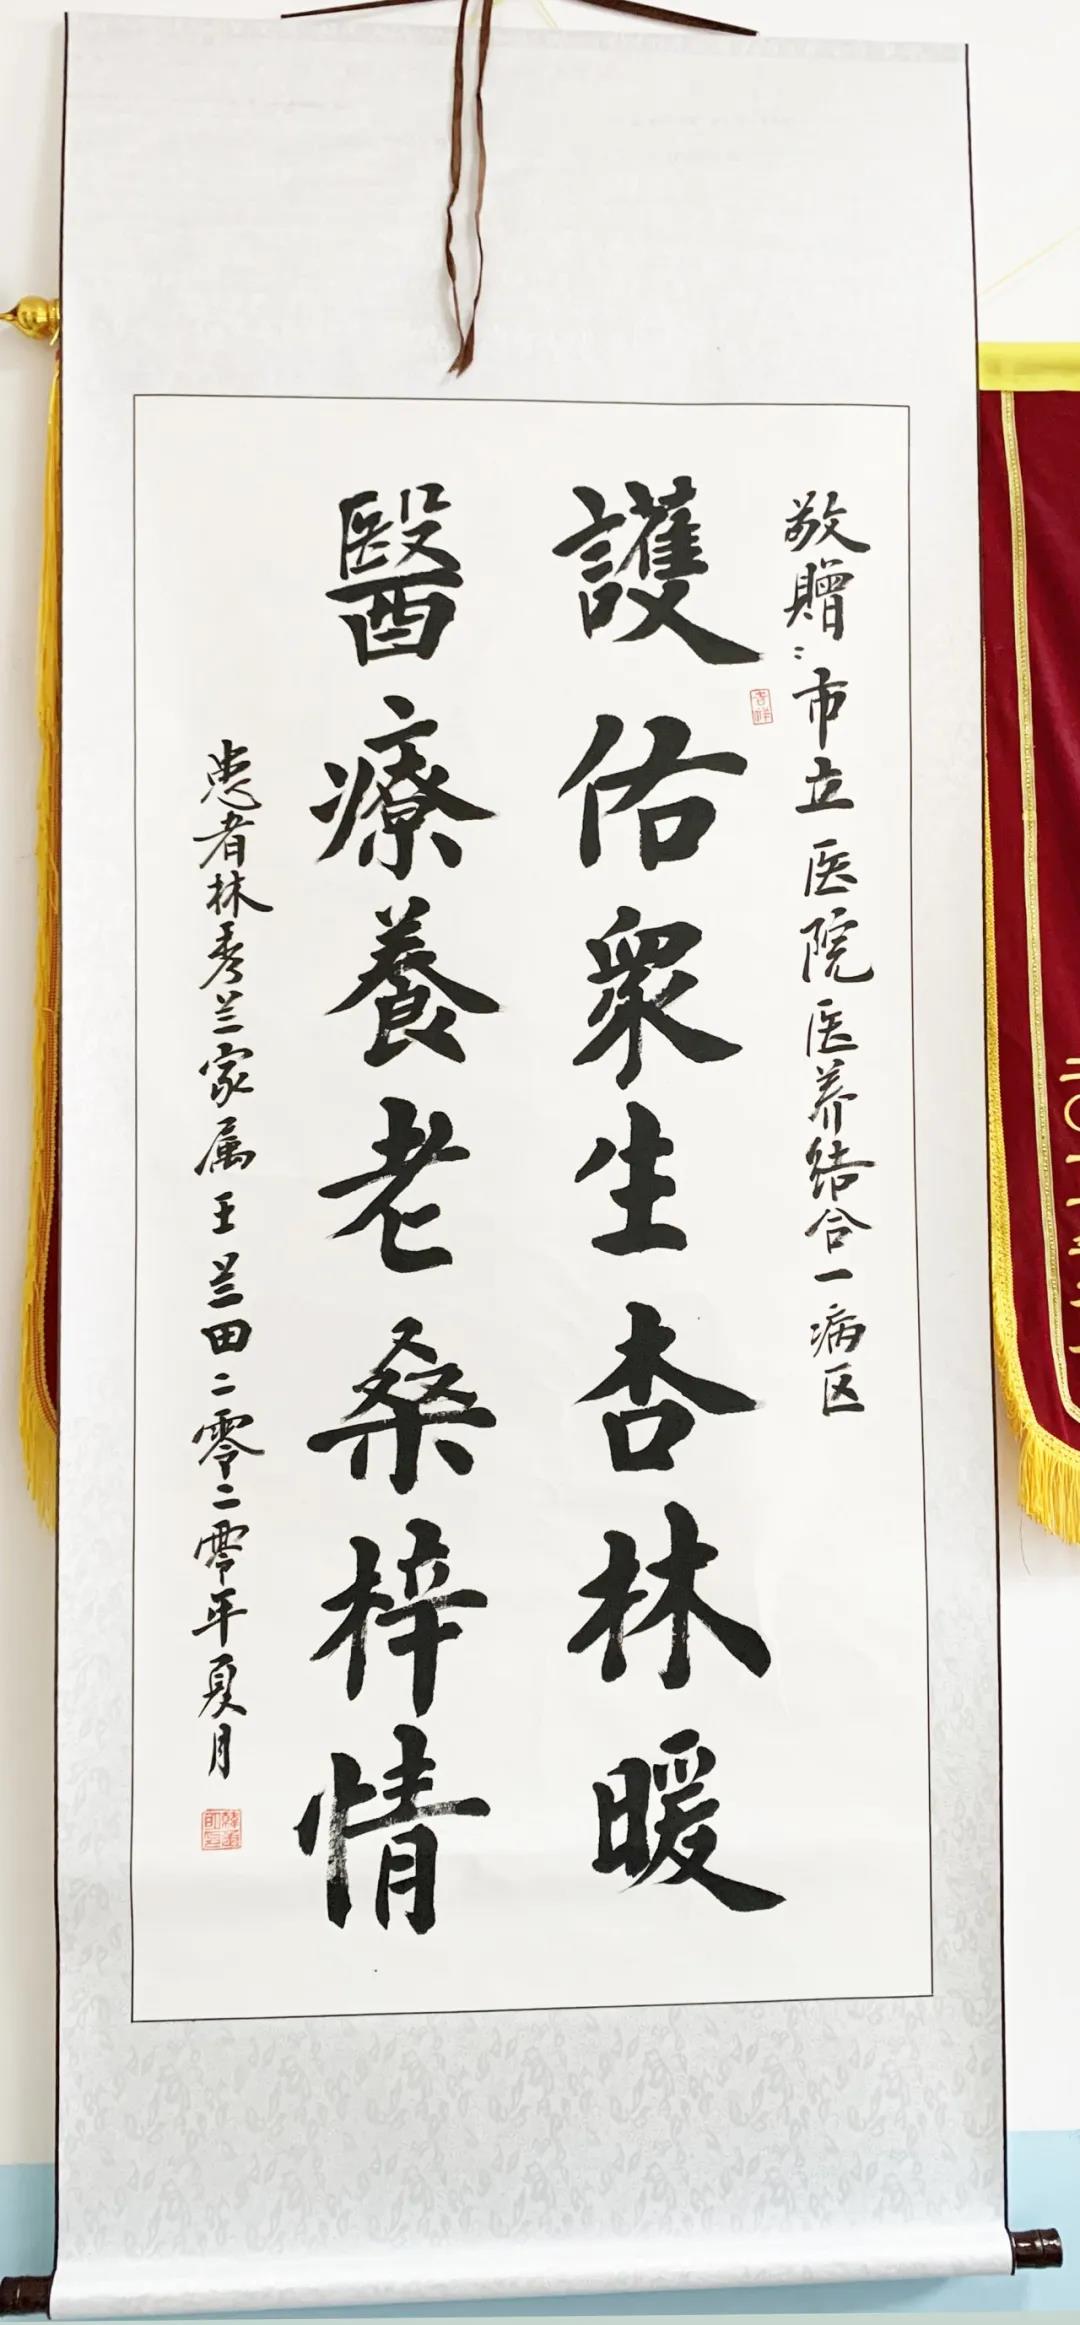 敬贈：市立医院医养结合一病区
護佑衆生杏林暖
醫療養老桑梓情
患者林秀兰家属王兰田二零二零年夏月
吉祥